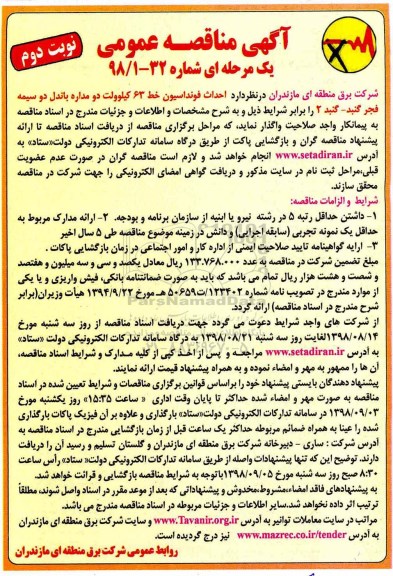 آگهی مناقصه عمومی
نوبت دوم
یک مرحله ای شماره ۳۲-۹۸/۱
شرکت برق منطقه ای مازندران درنظردارد احداث فونداسیون خط ۶۳ کیلوولت دو مداره باندل دو سیمه
فجر گنبد- گنبد ۲ را برابر شرایط ذیل و به شرح مشخصات و اطلاعات و جزئیات مندرج در اسناد مناقصه
به پیمانکار واجد صلاحیت واگذار نماید، که مراحل برگزاری مناقصه از دریافت اسناد مناقصه تا ارائه
پیشنهاد مناقصه گران و بازگشایی پاکات از طریق درگاه سامانه تدارکات الکترونیکی دولت«ستاد» به
آدرس www.setadiran.ir انجام خواهد شد و لازم است مناقصه گران در صورت عدم عضویت
قبلی،مراحل ثبت نام در سایت مذکور و دریافت گواهی امضای الکترونیکی را جهت شرکت در مناقصه
محقق سازند.
شرایط و الزامات مناقصه:
۱- داشتن حداقل رتبه ۵ در رشته نیرو یا ابنیه از سازمان برنامه و بودجه. ۲- ارائه مدارک مربوط به
حداقل یک نمونه تجربی (سابقه اجرایی) و دانش در زمینه موضوع مناقصه طی ۵ سال اخیر
۳- ارایه گواهینامه تایید صلاحیت ایمنی از اداره کار و امور اجتماعی در زمان بازگشایی پاکات .
مبلغ تضمین شرکت در مناقصه به عدد ۱۳۳.۷۶۸.۰۰۰ ریال معادل یکصد و سی و سه میلیون و هفتصد
و شصت و هشت هزار ریال تمام می باشد که باید به صورت ضمانتنامه بانکی، فیش واریزی و یا یکی
از موارد مندرج در تصویب نامه شماره ۱۲۳۴۰۲/ت۵۰۶۵۹ هـ مورخ ۱۳۹۴/۹/۲۲ هیأت وزیران(برابر
شرح مندرج در اسناد مناقصه) ارائه گردد.
از شرکت های واجد شرایط دعوت می گردد جهت دریافت اسناد مناقصه از روز سه شنبه مورخ
۱۳۹۸/۰۸/۱۴لغایت روز سه شنبه ۱۳۹۸/۰۸/۲۱ به درگاه سامانه تدارکات الکترونیکی دولت «ستاد»
به آدرس www.setadiran.ir مراجعه و پس از اخذ کپی از کلیه مدارک و شرایط اسناد مناقصه،
آن ها را ممهور به مهر و امضاء نموده و به همراه پیشنهاد قیمت ارائه نمایند.
پیشنهاد دهندگان بایستی پیشنهاد خود را براساس قوانین برگزاری مناقصات و شرایط تعیین شده در اسناد
مناقصه به صورت مهر و امضاء شده حداکثر تا پایان وقت اداری « ساعت ۱۵:۳۵» روز یکشنبه مورخ
۱۳۹۸/۰۹/۰۳ در سامانه تدارکات الکترونیکی دولت«ستاد» بارگذاری و علاوه بر آن فیزیک پاکات بارگذاری
شده را عینا به همراه ضمائم مربوطه حداکثر یک ساعت قبل از زمان بازگشایی مندرج در اسناد مناقصه به
آدرس شرکت : ساری - دبیرخانه شرکت برق منطقه ای مازندران و گلستان تسلیم و رسید آن را دریافت
دارند. توضیح این که تنها پیشنهادات واصله از طریق سامانه تدارکات الکترونیکی دولت« ستاد» رأس ساعت
۸:۳۰ صبح روز سه شنبه مورخ ۱۳۹۸/۰۹/۰۵باتوجه به شرایط مناقصه بازگشایی و قرائت خواهد شد.
به پیشنهادهای فاقد امضاء،مشروط،مخدوش و پیشنهاداتی که بعد از موعد مقرر در اسناد واصل شوند، مطلقاً
ترتیب اثر داده نخواهد شد.سایر اطلاعات و جزئیات مربوطه در اسناد مناقصه مندرج می باشد.
مراتب در سایت معاملات توانیر به آدرس www.Tavanir.org.ir و سایت شرکت برق منطقه ای مازندران
به آدرس www.mazrec.co.ir/tender نیز درج گردیده است.
روابط عمومی شرکت برق منطقه ای مازندران